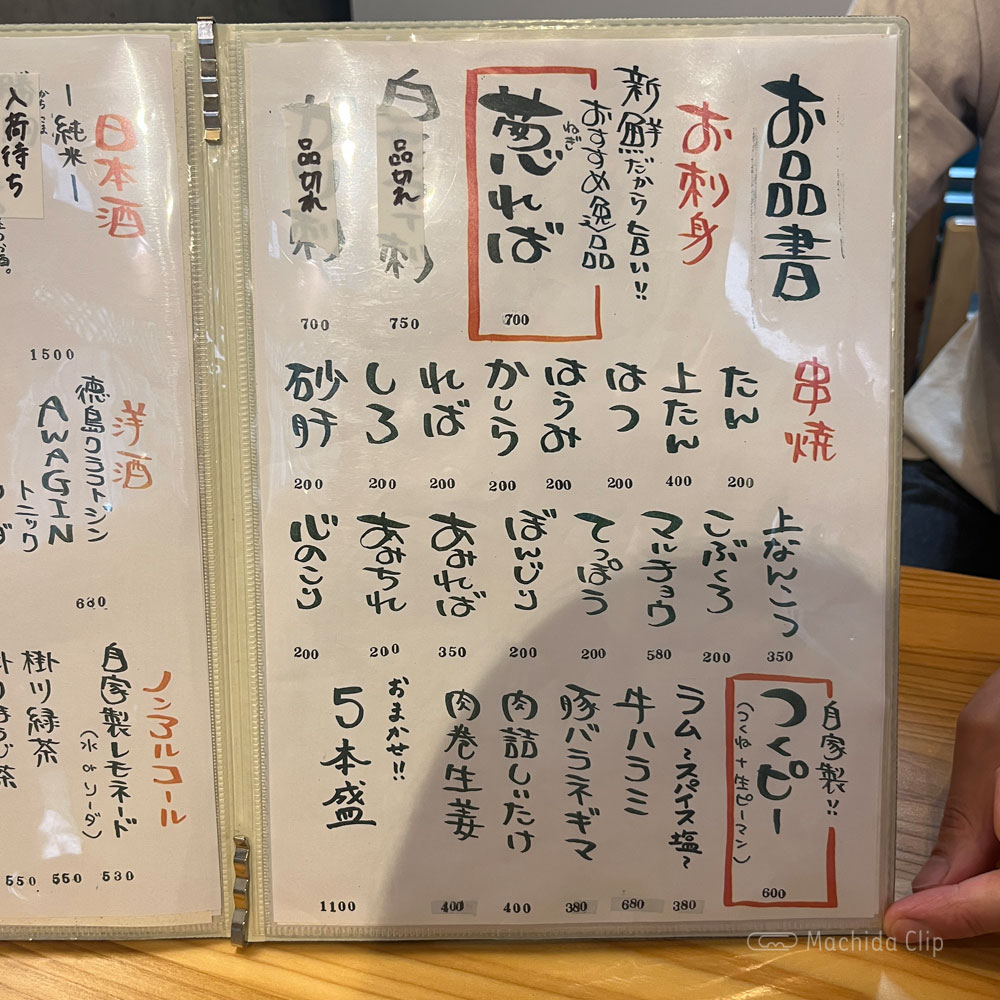 お品書
お刺身
新鮮だから旨い!!
おすすめ逸品
ねぎ
葱れば
700
品切れ
750
品切れ
700
串焼
たん
200
上たん
400
はつ
200
はらみ
200
かしら
200
れば
200
しろ
200
砂肝
200
上なんこつ
350
こぶくろ
200
マルチョウ
580
てっぽう
200
ぼんじり
200
あみれば
350
あみちれ
200
心のこり
200
自家製!!
つくピー
(つくね+生ピーマン)
600
ラム~スパイス塩~
380
牛ハラミ
680
豚バラネギマ
380
肉詰しいたけ
400
肉巻生姜
400
おまかせ!!
5本盛
1100
日本酒
ー純米ー
入荷待ち
1500
洋酒
徳島クラフトジン
AWAGIN
トニック
680
ノンアルコール
自家製レモネード
(水 or ソーダ)
530
掛川緑茶
550
550
Machida Clip